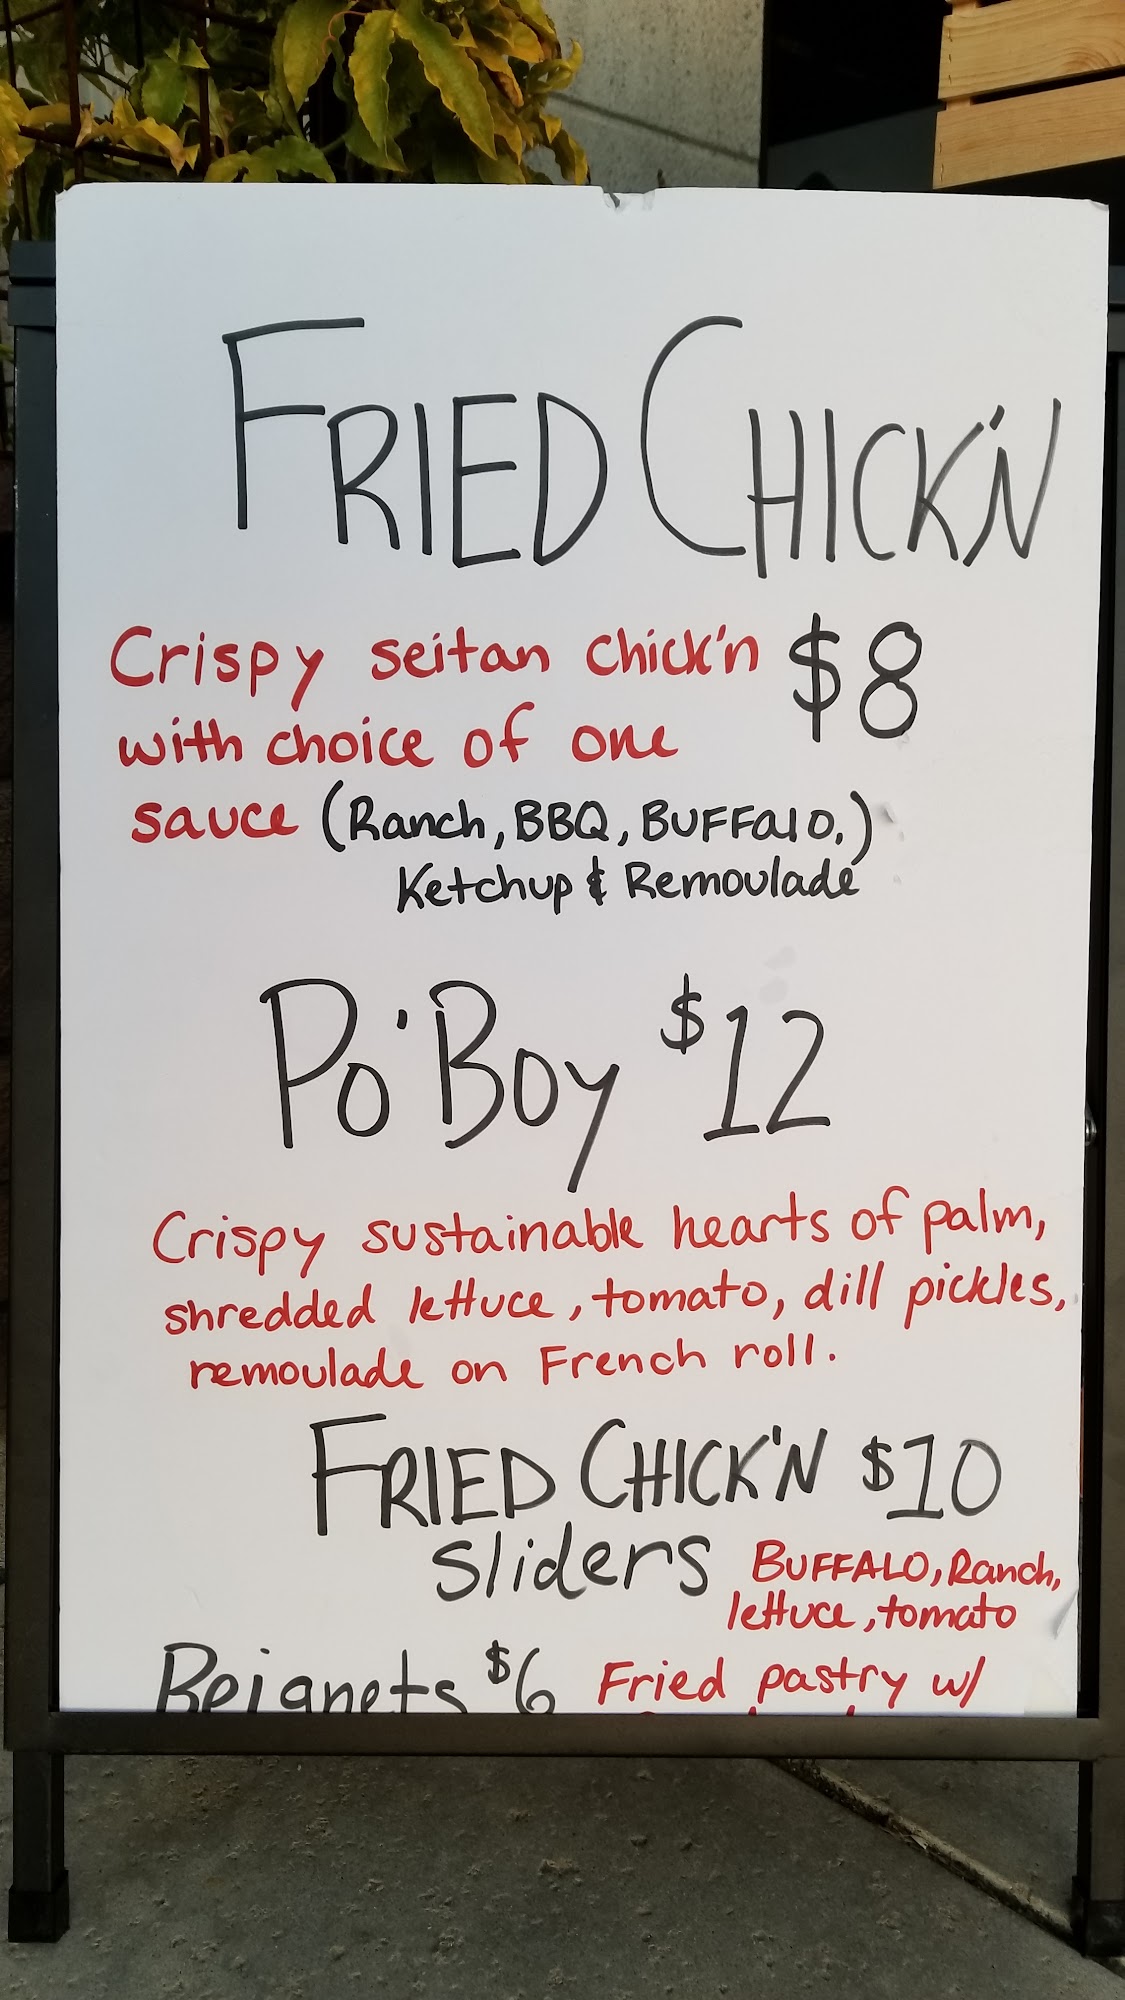 FRIED CHICK'N
Crispy seitan chick'n $8
with choice of one
sauce (Ranch, BBQ, BUFFalo,)
Ketchup & Remoulade
Po'Boy $12
Crispy sustainable hearts of palm,
shredded lettuce, tomato, dill pickles,
remoulade on French roll.
FRIED CHICK'N $10
sliders BUFFALO, Ranch,
lettuce, tomato
Beignets $6 Fried pastry w/